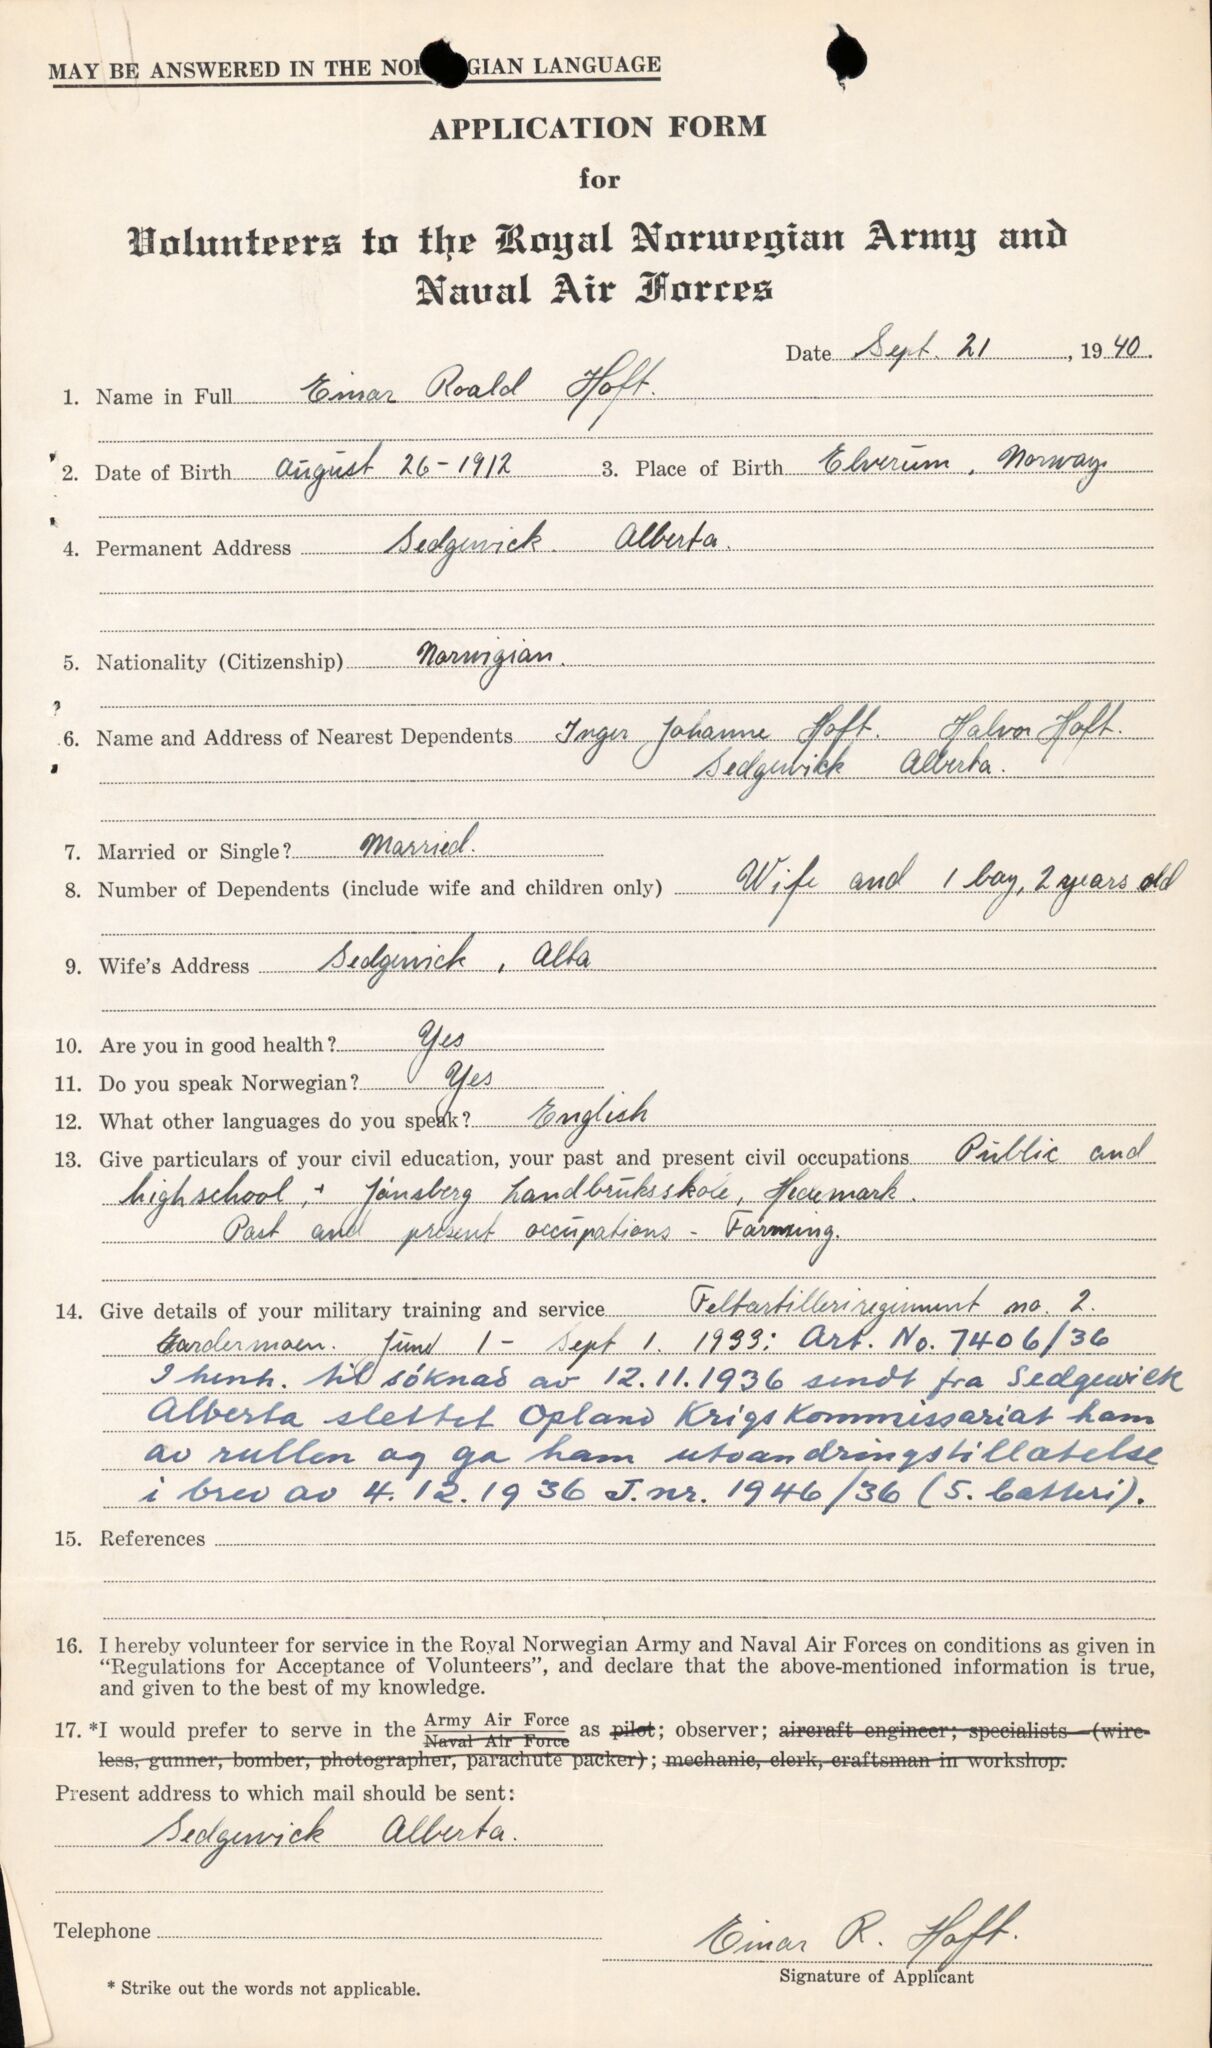 MAY BE ANSWERED IN THE NORWEGIAN LANGUAGE
APPLICATION FORM
for
Volunteers to the Royal Norwegian Army and
Naval Air Forces
Date Sept. 21, 1940.
1. Name in Full Einar Roald Hoft.
2. Date of Birth August 26-1912 3. Place of Birth Elverum, Norway
4. Permanent Address Sedgewick. Alberta.
5. Nationality (Citizenship) Norwigian.
6. Name and Address of Nearest Dependents Inger Johanne Hoft. Halvor Hoft.
Sedgewick Alberta.
7. Married or Single? Married.
8. Number of Dependents (include wife and children only) Wife and 1 boy, 2 years old
9. Wife's Address Sedgewick, Alta
10. Are you in good health? Yes
11. Do you speak Norwegian? Yes
12. What other languages do you speak? English
13. Give particulars of your civil education, your past and present civil occupations Public and
highschool, + Jønsberg Landbruksskole, Hedemark.
Past and present occupations - Farming.
14. Give details of your military training and service Feltartilleriregiment no. 2.
Gardermoen. June 1 - Sept 1. 1933: Art. No. 7406/36
I henh. til söknad av 12.11.1936 sendt fra Sedgewick
Alberta slettet Opland Krigskommissariat ham
av rullen og ga ham utvandringstillatelse
i brev av 4.12.1936 J.nr. 1946/36 (5. batteri).
15. References
16. I hereby volunteer for service in the Royal Norwegian Army and Naval Air Forces on conditions as given in
"Regulations for Acceptance of Volunteers", and declare that the above-mentioned information is true,
and given to the best of my knowledge.
17. *I would prefer to serve in the Army Air Force Naval Air Force as pilot; observer; aircraft engineer; specialists (wire-
less, gunner, bomber, photographer, parachute packer); mechanic, clerk, craftsman in workshop.
Present address to which mail should be sent:
Sedgewick Alberta.
Telephone
Einar R. Hoft.
Signature of Applicant
* Strike out the words not applicable.